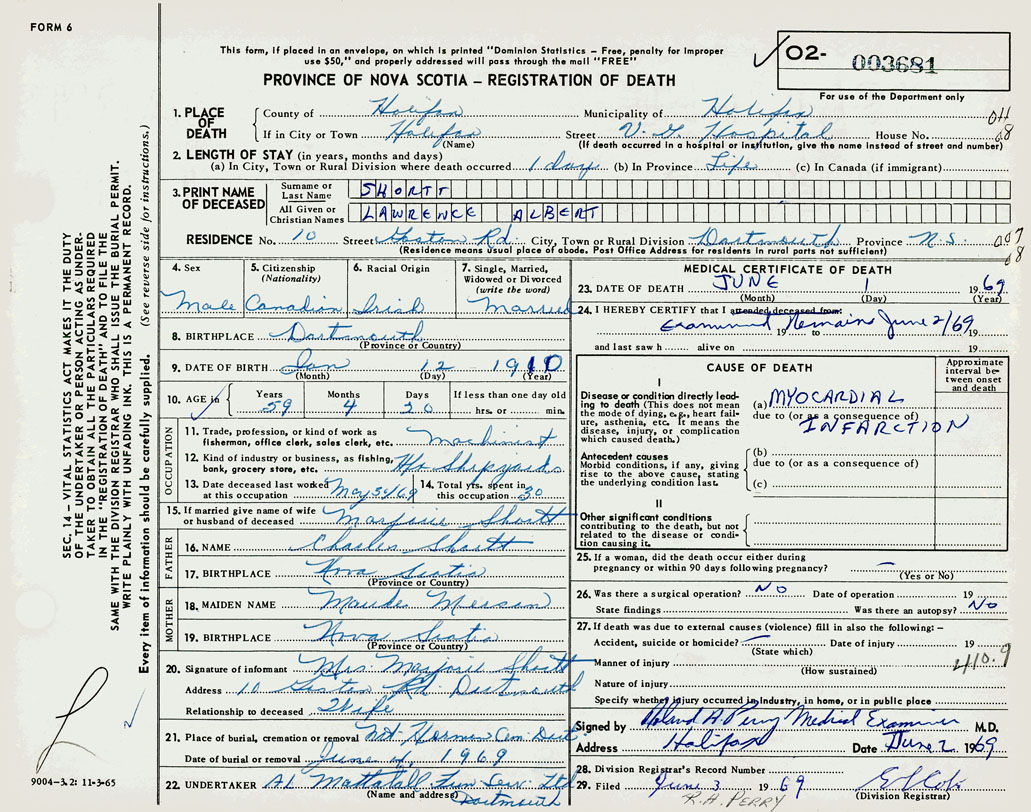 FORM 6
This form, if placed in an envelope, on which is printed "Dominion Statistics – Free, penalty for improper
use $50," and properly addressed will pass through the mail "FREE"
PROVINCE OF NOVA SCOTIA – REGISTRATION OF DEATH
02- 003681
For use of the Department only
1. PLACE OF DEATH
County of Halifax Municipality of Halifax
If in City or Town Halifax Street V. G. Hospital House No.
(Name) (If death occurred in a hospital or institution, give the name instead of street and number)
2. LENGTH OF STAY (in years, months and days)
(a) In City, Town or Rural Division where death occurred 1 day (b) In Province Life (c) In Canada (if immigrant)
3. PRINT NAME OF DECEASED
Surname or Last Name SHORTT
All Given or Christian Names LAWRENCE ALBERT
RESIDENCE No. 10 Street Rd. City, Town or Rural Division Dartmouth Province N.S.
(Residence means usual place of abode. Post Office Address for residents in rural parts not sufficient)
4. Sex Male
5. Citizenship (Nationality) Canadian
6. Racial Origin Irish
7. Single, Married, Widowed or Divorced (write the word) Married
8. BIRTHPLACE Dartmouth
(Province or Country)
9. DATE OF BIRTH Jan 12 1910
(Month) (Day) (Year)
10. AGE in Years 59 Months 4 Days 20 If less than one day old hrs. or min.
OCCUPATION
11. Trade, profession, or kind of work as fisherman, office clerk, sales clerk, etc. Machinist
12. Kind of industry or business, as fishing, bank, grocery store, etc. Hfx Shipyards
13. Date deceased last worked at this occupation May 30/69 14. Total yrs. spent in this occupation 30
15. If married give name of wife or husband of deceased Marjorie Shortt
FATHER
16. NAME Charles Shortt
17. BIRTHPLACE Nova Scotia
(Province or Country)
MOTHER
18. MAIDEN NAME Maude
19. BIRTHPLACE Nova Scotia
(Province or Country)
20. Signature of informant Mrs. Marjorie Shortt
Address 10 Rd. Dartmouth
Relationship to deceased Wife
21. Place of burial, cremation or removal Mt Hermon Cem. Dart.
Date of burial or removal June 4, 1969
22. UNDERTAKER Al Mattatall Fun Serv. Ltd
(Name and address) Dartmouth
MEDICAL CERTIFICATE OF DEATH
23. DATE OF DEATH JUNE 1 1969
(Month) (Day) (Year)
24. I HEREBY CERTIFY that I attended deceased from:
Examined Remains June 2/69 19 to 19
and last saw h alive on 19
CAUSE OF DEATH
Approximate interval between onset and death
I
Disease or condition directly leading to death (This does not mean the mode of dying, e.g., heart failure, asthenia, etc. It means the disease, injury, or complication which caused death.)
(a) MYOCARDIAL
due to (or as a consequence of)
INFARCTION
Antecedent causes
Morbid conditions, if any, giving rise to the above cause, stating the underlying condition last.
(b)
due to (or as a consequence of)
(c)
II
Other significant conditions
contributing to the death, but not related to the disease or condition causing it.
25. If a woman, did the death occur either during
pregnancy or within 90 days following pregnancy? –
(Yes or No)
26. Was there a surgical operation? NO Date of operation 19
State findings Was there an autopsy? NO
27. If death was due to external causes (violence) fill in also the following: –
Accident, suicide or homicide? – Date of injury 19
(State which)
Manner of injury 410.9
(How sustained)
Nature of injury
Specify whether injury occurred in industry, in home, or in public place
Signed by Roland A Perry Medical Examiner M.D.
Address Halifax Date June 2 1969
28. Division Registrar's Record Number
29. Filed June 3 1969
(Division Registrar)
R.A. PERRY
SEC. 14 – VITAL STATISTICS ACT MAKES IT THE DUTY
OF THE UNDERTAKER OR PERSON ACTING AS UNDER-
TAKER TO OBTAIN ALL THE PARTICULARS REQUIRED
IN THE "REGISTRATION OF DEATH" AND TO FILE THE
SAME WITH THE DIVISION REGISTRAR WHO SHALL ISSUE THE BURIAL PERMIT.
WRITE PLAINLY WITH UNFADING INK. THIS IS A PERMANENT RECORD.
Every item of information should be carefully supplied. (See reverse side for instructions.)
9004-3.2: 11-3-65